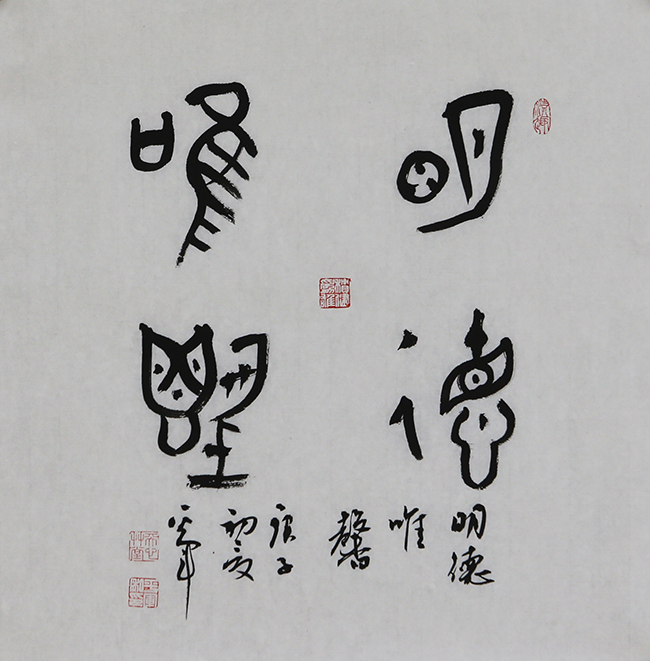 明德
唯馨
明德
唯
馨
庚子
初夏